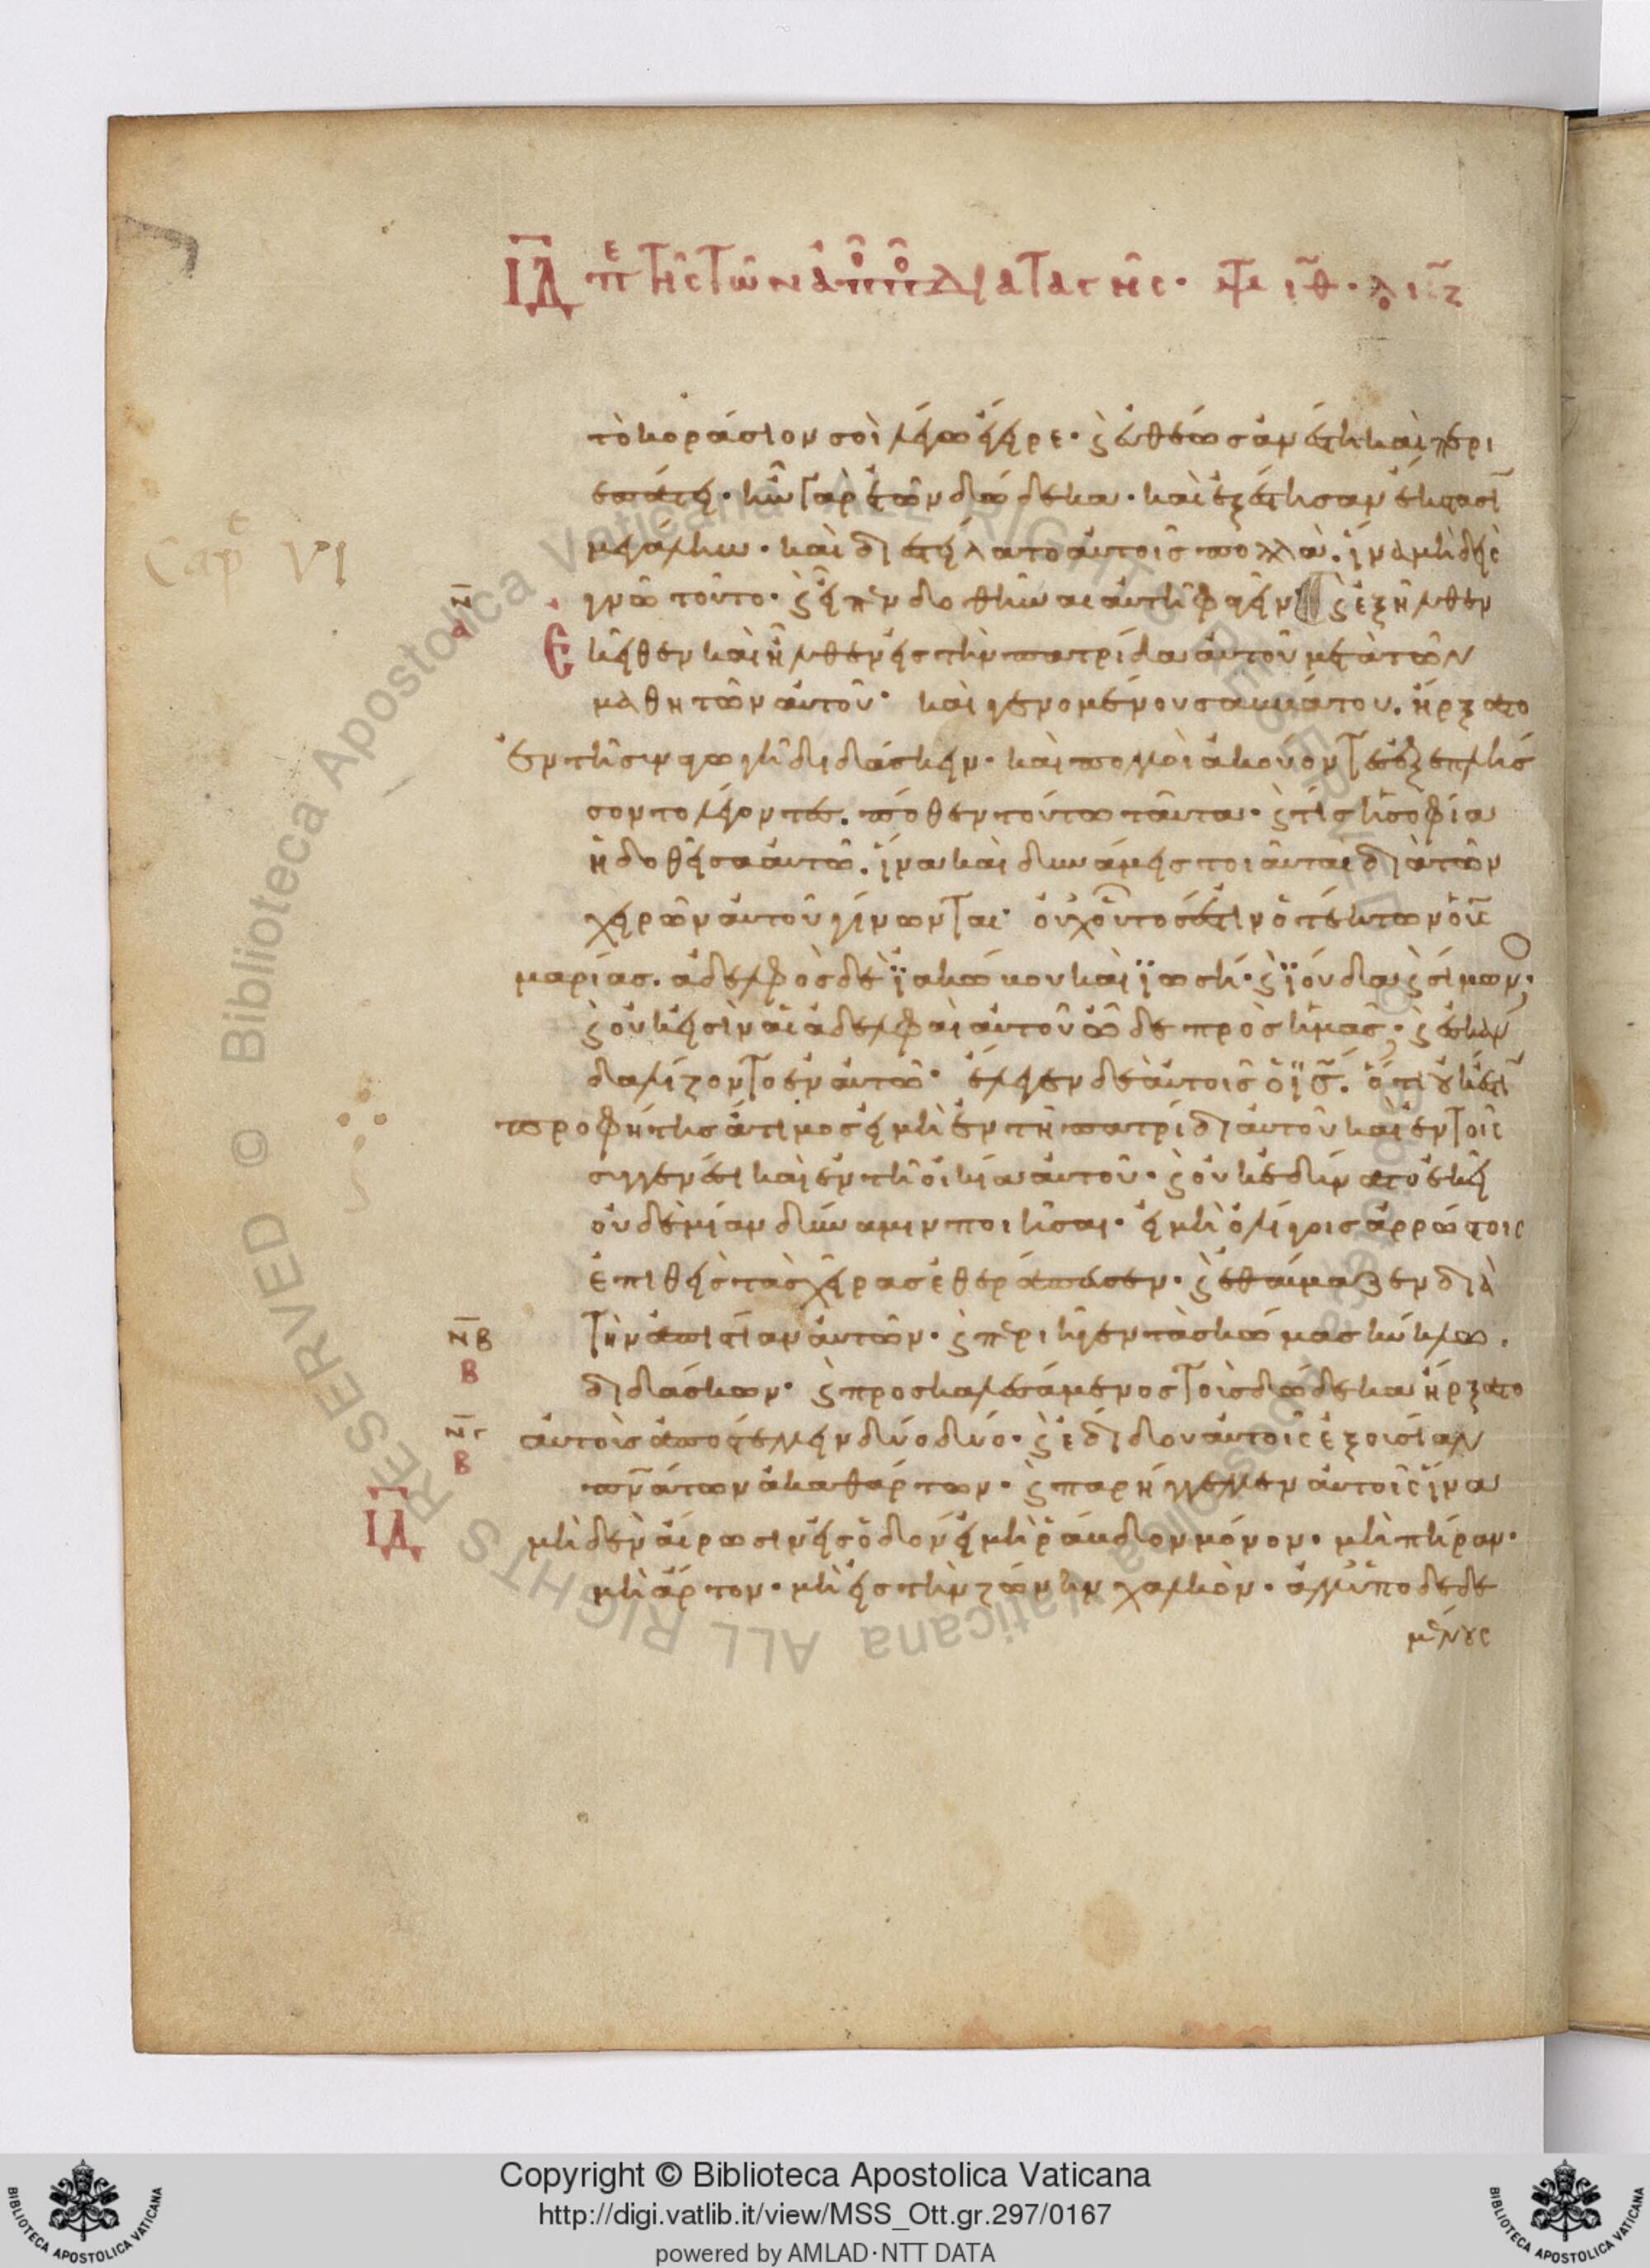 ΙΔ πε τῆς τῶν ἀπο̂ πο̂ διαταγῆς· μτ ιθ· λο ιζ
τὸ κοράσιον σοὶ λέγω ἔγειρε· ϛ εὐθέως ἀνέστη καὶ περι
επάτει· ἦν γὰρ ἐτῶν δώδεκα· καὶ ἐξέστησαν ἐκστασϊ
μεγάλη· καὶ διεστείλατο αὐτοῖς πολλὰ. ἵνα μὴδεὶς
γνῶ τοῦτο· ϛ εἶπεν δοθῆναι αὐτῆ φαγεῖν ϛ ἐξῆλθεν
Cap VI
Ν
α
Ἐκεῖθεν καὶ ἦλθεν εἰς τὴν πατρίδα αὐτοῦ μετὰ τῶν
μαθητῶν αὐτοῦ· καὶ γενομένου σαββάτου. ἤρξατο
ἐν τῆ συναγωγῆ διδάσκειν· καὶ πολλοὶ ἀκούοντες ἐξεπλήσ
σοντο λέγοντες. πόθεν τούτω ταῦτα· ϛ τίς ἡ σοφία
ἡ δοθεῖσα αὐτῶ. ἵνα καὶ δυνάμεις τοιαῦται διὰ τῶν
χειρῶν αὐτοῦ γίνωνται· οὐχ οὗτος ἐστιν ὁ τέκτων ὁ υϊς
μαρίας. ἀδελφὸς δὲ ϊακώβου καὶ ϊωσῆ· ϛ ϊούδα ϛ σίμωνο,
ϛ οὐκ εἰσὶν αἱ ἀδελφαὶ αὐτοῦ ὧδε πρὸς ἡμᾶς; ϛ ἐσκαν
δαλίζοντο ἐν αὐτῶ· ἔλεγεν δὲ αὐτοῖς ὁ ϊς. ὅτι οὐκ ἔστϊ
προφήτης ἄτιμος εἰ μὴ ἐν τῆ πατρίδι αὐτοῦ καὶ ἐν τοῖς
συγγενέσι καὶ ἐν τῆ οἰκία αὐτοῦ· ϛ οὐκ ἐδύνατο ἐκεῖ
οὐδὲμίαν δύναμιν ποιῆσαι· εἰ μὴ ὀλίγοις ἀρρώστοις
ἐπιθεὶς τὰς χεῖρας ἐθεράπευσεν· ϛ ἐθαύμαζεν διὰ
ΝΒ
Β
τὴν ἀπιστίαν αὐτῶν· ϛ περιῆγεν τὰς κώμας κύκλω.
διδάσκων· ϛ προσκαλεσάμενος τοὺς δώδεκα ἤρξατο
ΝΓ
Β
αὐτοὺς ἀποστέλλειν δύο δύο· ϛ ἐδίδου αὐτοῖς ἐξουσίαν
πνάτων ἀκαθάρτων· ϛ παρήγγελλεν αὐτοῖς ἵνα
ΙΔ
μὴδεν αἴρωσιν εἰς ὁδον εἰ μὴ ῥάβδον μόνον· μὴ πήραν·
μὴ ἄρτον· μὴ εἰς τὴν ζώνην χαλκὸν· ἀλλ' ὑποδεδε
μένους
Copyright © Biblioteca Apostolica Vaticana
http://digi.vatlib.it/view/MSS_Ott.gr.297/0167
powered by AMLAD·NTT DATA